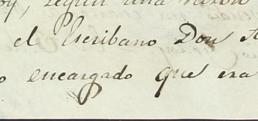 según una
el Escribano Don
encargado que era